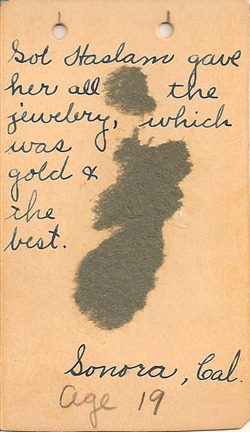 Sol Haslam gave
her all the
jewelery, which
was
gold &
the
best.
Sonora, Cal.
Age 19